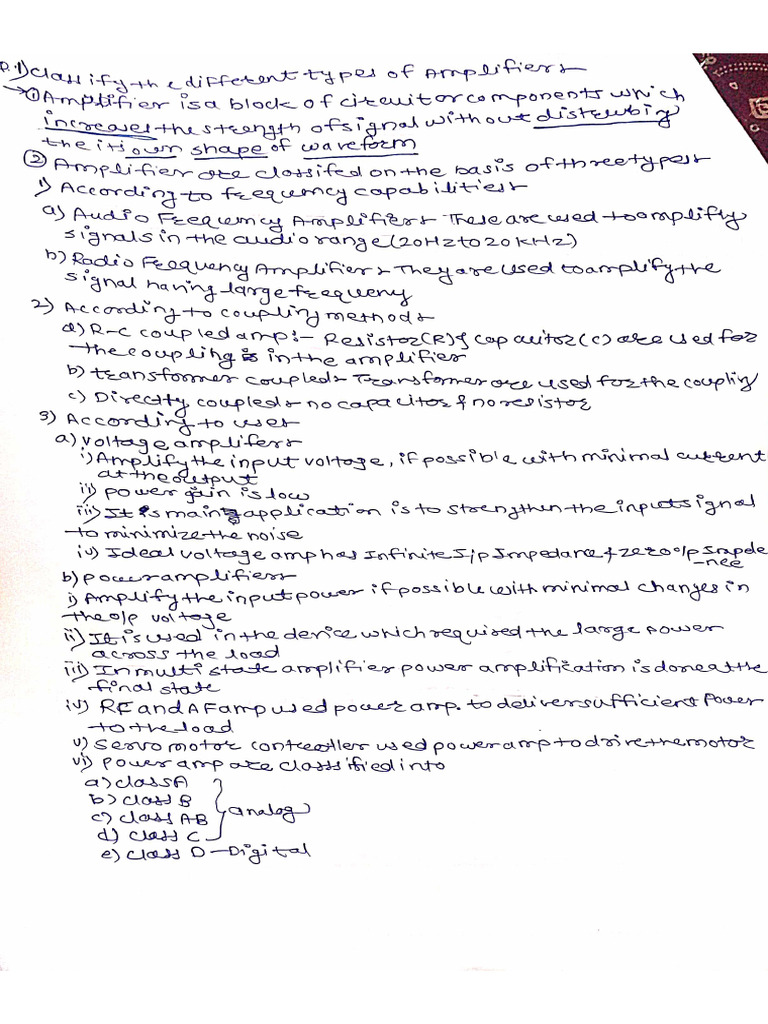 Q.1) Classify the different types of Amplifiers
→① Amplifier is a block of circuit or components which
increases the strength of signal without distrubing
the it's own shape of waveform
② Amplifier are classifed on the basis of three types
1) According to frequency capabilities
a) Audio Frequency Amplifiers These are used to amplifly
signals in the audio range (20Hz to 20 kHz)
b) Radio Frequency Amplifiers They are used to amplify the
signal having large frequency
2) According to coupling methods
a) R-C coupled amp:- Resistor(R) & capacitor(c) are used for
the coupling in the amplifier
b) transformer coupled Transformer are used for the coupling
c) Directly coupled no capacitor & no resistor
3) According to uses
a) voltage amplifers
i) Amplify the input voltage, if possible with minimal current
at the output
ii) power gain is low
iii) It is main application is to strengthen the input signal
to minimize the noise
iv) Ideal voltage amp has Infinite I/p Impedance & zero o/p Impde
-nce
b) power amplifiers
i) Amplify the input power if possible with minimal changes in
the o/p voltage
ii) It is used in the device which required the large power
across the load
iii) In multi state amplifier power amplification is done at the
final state
iv) RF and AF amp used power amp. to deliver sufficient Power
to the load
v) servo motor controller used power amp to drive the motor
vi) power amp are classified into
a) class A
b) class B
c) class AB
d) class C
analog
e) class D - Digital